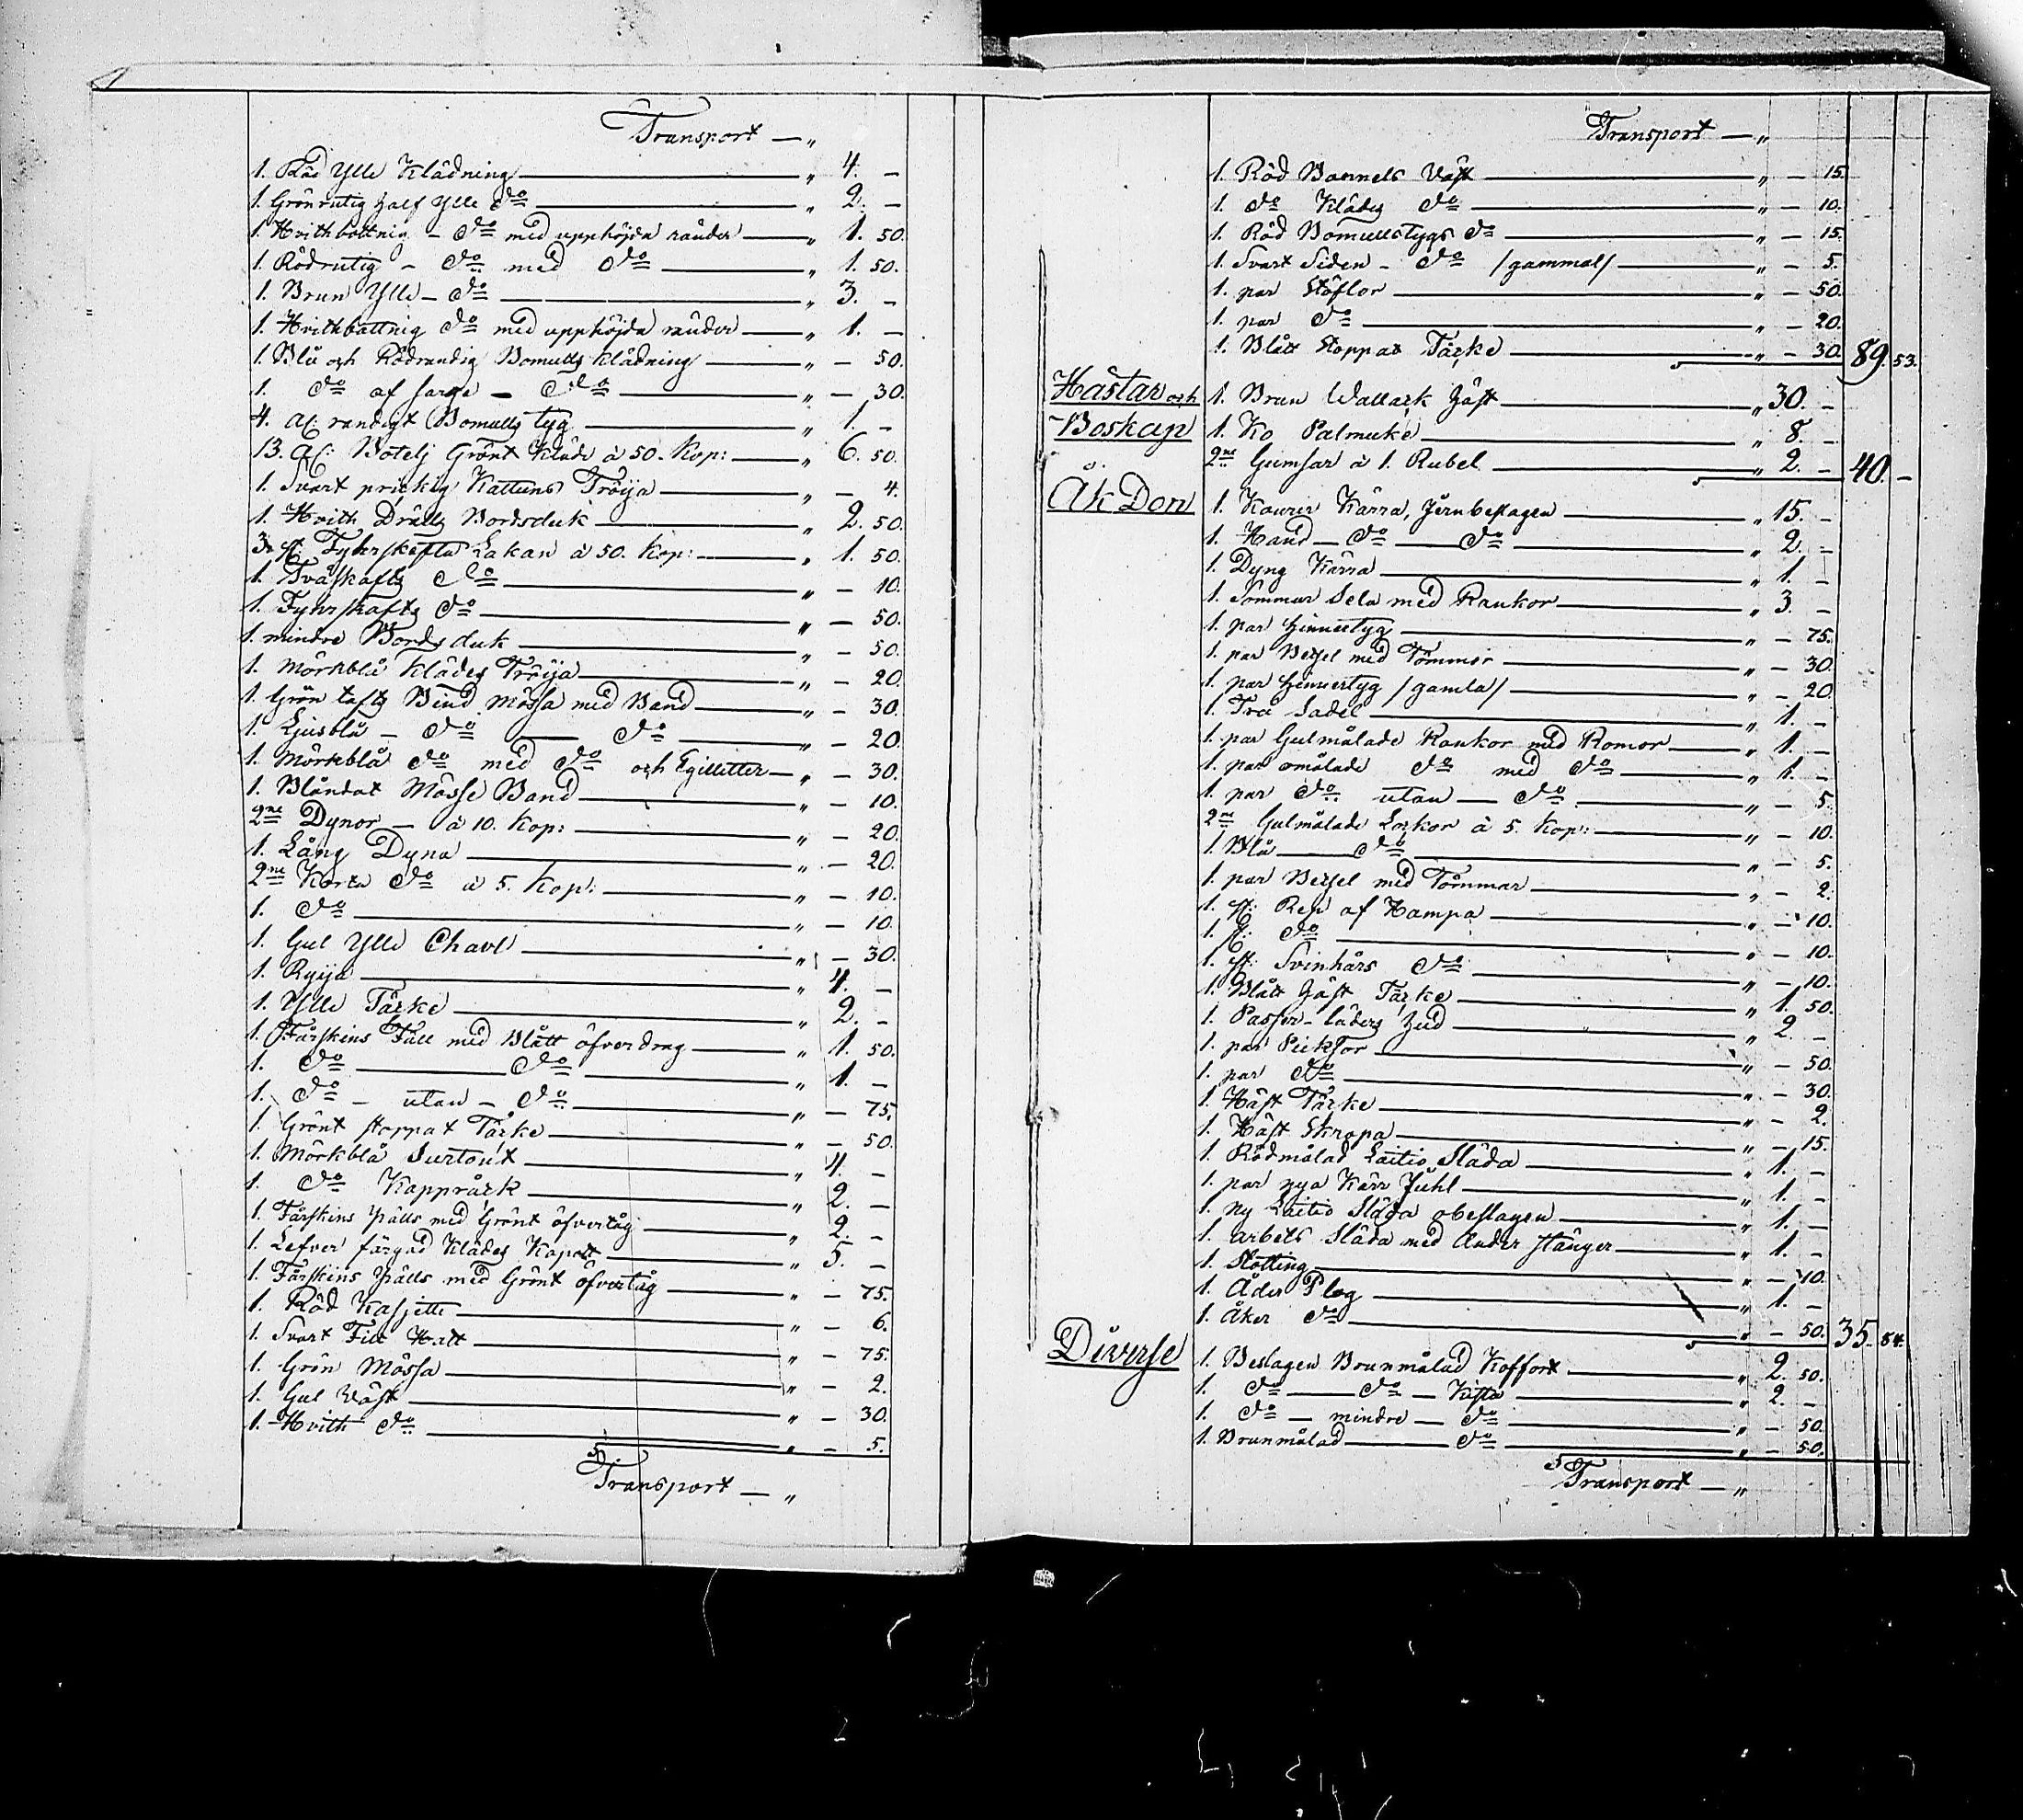 Transport — „
1. Röd Ylle Klädning — „ 4. —
1. Grönrutig half Ylle do — „ 2. —
1. Hvithbottnig — do med upphöjda ränder — „ 1. 50.
1. Rödrutig — do med do — „ 1. 50.
1. Brun Ylle — do — „ 3. —
1. Hvithbottnig do med upphöjda ränder — „ 1. —
1. Blå och Rödrandig Bomulls klädning — „ — 50.
1. do af sarge — do — „ — 30.
4. al: randigt Bomulls tyg — „ 1. —
13. al: Botelj Grönt Kläde à 50. Kop: — „ 6. 50.
1. Svart prickig Kattuns Tröija — „ — 4.
1. Hvith Drälls Bordsduk — „ 2. 50.
3. st: Fyhrskafta Lakan à 50. Kop: — „ 1. 50.
1. Tvåskafts do — „ — 10.
1. Fyhrskafts do — „ — 50.
1. mindre Bordsduk — „ — 50.
1. Mörkblå Klädes Tröija — „ — 20.
1. Grön tafts Bind Mössa med Band — „ — 30.
1. Ljusblå — do — do — „ — 20.
1. Mörkblå do med do och Egilletter — „ — 30.
1. Blåndat Mösse Band — „ — 10.
2ne Dynor — à 10. Kop: — „ — 20.
1. Lång Dyna — „ — 20.
2ne Korta do à 5. Kop: — „ — 10.
1. do — „ — 10.
1. Gul Ylle Chavl — „ — 30.
1. Ryija — „ 4. —
1. Ylle Täcke — „ 2. —
1. Fårskins Fäll med Blått öfverdrag — „ 1. 50.
1. do — do — „ 1. —
1. do — utan — do — „ — 75.
1. Grönt stoppat Täcke — „ — 50.
1. Mörkblå Surtout — „ 4. —
1. do Kappråck — „ 2. —
1. Fårskins Pälls med Grönt öfvertåg — „ 2. —
1. Lefver färgad Klädes Kapott — „ 5. —
1. Fårskins Pälls med Grönt öfvertåg — „ — 75.
1. Röd Kasjette — „ — 6.
1. Svart Filt Hatt — „ — 75.
1. Grön Mössa — „ — 2.
1. Gul Väst — „ — 30.
1. Hvith do — „ — 5.
Transport — „
Transport — „
1. Röd Bannels Väst — „ — 15.
1. do Klädes do — „ — 10.
1. Röd Bomullstygs do — „ — 15.
1. Svart Siden — do /gammal/ — „ — 5.
1. par Stöflor — „ — 50.
1. par do — „ — 20.
1. Blått Stoppat Täcke — „ — 30. 89. 53.
Hästar och 1. Brun Wallack häst — „ 30. —
Boskap 1. Ko Palmuke — „ 8. —
2ne Gumsar à 1. Rubel — „ 2. — 40. —
Åk Don 1. Kourir Kärra, Jernbeslagen — „ 15. —
1. Hand — do — do — „ 2. —
1. Dyng Kärra — „ 1. —
1. Sommar Sela med Rankor — „ 3. —
1. par himertyg — „ — 75.
1. par Betsel med Tömmor — „ — 30.
1. par himertyg /gamla/ — „ — 20.
1. Trä Sadel — „ 1. —
1. par Gulmålade Rankor med Romor — „ 1. —
1. par omålade do med do — „ 1. —
1. par do utan — do — „ — 5.
2ne Gulmålade Lockor à 5. Kop: — „ — 10.
1. Blå — do — „ — 5.
1. par Betsel med Tömmar — „ — 2.
1. st: Rep af Hampa — „ — 10.
1. st: do — „ — 10.
1. st: Svinhårs do — „ — 10.
1. Blått häst Täcke — „ 1. 50.
1. Passov-läders hud — „ 2. —
1. par Picktor — „ — 50.
1. par do — „ — 30.
1. Häst Täcke — „ — 2.
1. Häst Skropa — „ — 15.
1. Rödmålad Laitio Släda — „ 1. —
1. par nya Kärr Juhl — „ 1. —
1. ny Laitio Släda obeslagen — „ 1. —
1. arbets Släda med Ander stänger — „ 1. —
1. Stötting — „ — 10.
1. Åder Plog — „ 1. —
1. Åker do — „ — 50. 35. 84.
Diverse 1. Beslagen Brunmålad Koffort — „ 2. 50.
1. do — do — Kista — „ 2. —
1. do — mindre — do — „ — 50.
1. Brunmålad — do — „ — 50.
Transport — „